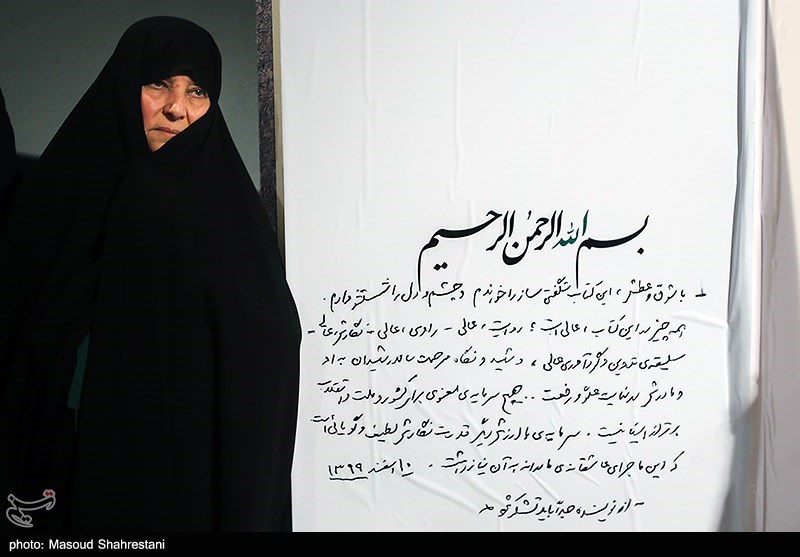 بسم الله الرحمن الرحیم
با شوق و عطش، این کتاب شگفتی‌ساز را خواندم و چشم و دل را شستشو دادم.
همه چیز در این کتاب، عالی است؛ روایت، عالی - راوی، عالی - نگارش، عالی -
سلیقه‌ی تدوین و گردآوری عالی، و شهید و نگاه مرحمت سالار شهیدان به او
و مادرش در نهایت علوّ و رفعت .. هیچ سرمایه‌ی معنوی برای کشور و ملت و انقلاب
برتر از اینها نیست. سرمایه‌ی باارزش دیگر قدرت نگارش لطیف و گویائی است
که این ماجرای عاشقانه‌ی مادرانه به آن نیاز داشت. ۱۰ اسفند ۱۳۹۹
- از نویسنده جداً باید تشکر شود
تسنیم
photo: Masoud Shahrestani